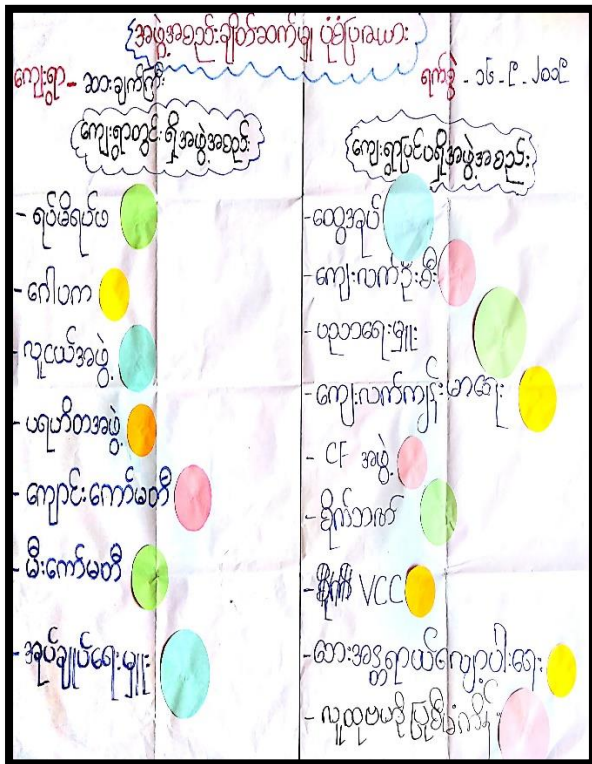 အဖွဲ့အစည်းချိတ်ဆက်မှု ပုံစံပြဇယား
ကျေးရွာ - ဆားချက်ကြီး
ရက်စွဲ - ၁၆-၉-၂၀၁၉
ကျေးရွာတွင်းရှိအဖွဲ့အစည်း
- ရပ်မိရပ်ဖ
- ဂေါပက
- လူငယ်အဖွဲ့
- ပရဟိတအဖွဲ့
- ကျောင်းကော်မတီ
- မီးကော်မတီ
- အုပ်ချုပ်ရေးမှူး
ကျေးရွာပြင်ပရှိအဖွဲ့အစည်း
- ထွေအုပ်
- ကျေးလက်ဦးစီး
- ပညာရေးမှူး
- ကျေးလက်ကျန်းမာရေး
- CF အဖွဲ့
- စိုက်ဘဏ်
- VCC
- ဘေးအန္တရာယ်လျော့ပါးရေး
- လူထုဗဟိုပြုစီမံကိန်း